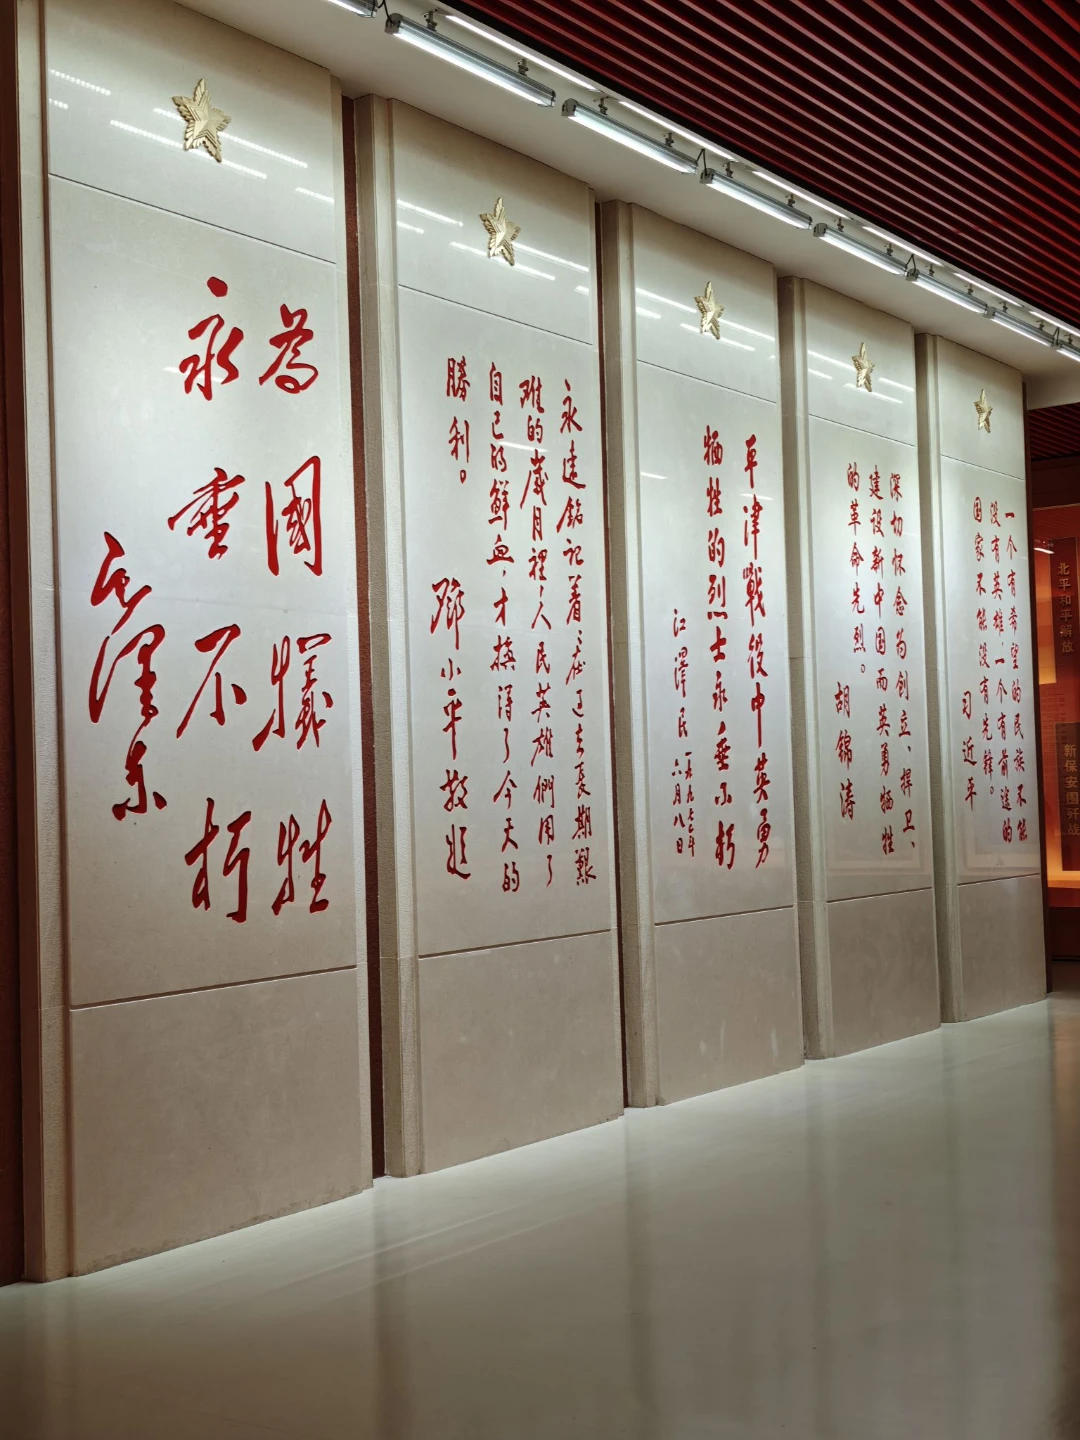 為國犧牲
永垂不朽
毛澤东
永遠銘記着：在过去長期艱
难的歲月裡，人民英雄們用了
自己的鮮血，才換得了今天的
勝利。
鄧小平敬題
平津戰役中英勇
牺牲的烈士永垂不朽
江澤民
一九九七年
六月八日
深切怀念为创立、捍卫、
建设新中国而英勇牺牲
的革命先烈。
胡锦涛
一个有希望的民族不能
没有英雄，一个有前途的
国家不能没有先锋。
习近平
北平和平解放
新保安围歼战